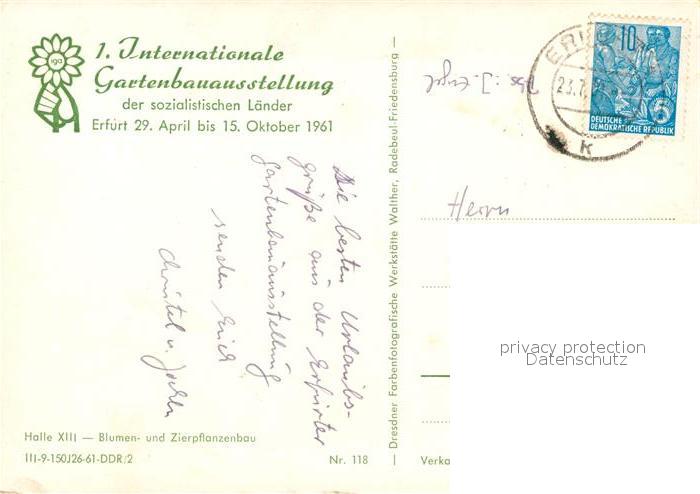 iga
1. Internationale
Gartenbauausstellung
der sozialistischen Länder
Erfurt 29. April bis 15. Oktober 1961
Die besten Urlaubs-
grüße aus der Erfurter
Gartenbauausstellung
senden Euch
Christel u. Jochen
Halle XIII — Blumen- und Zierpflanzenbau
III-9-150J26-61-DDR/2
Nr. 118
— Dresdner Farbenfotografische Werkstätte Walther, Radebeul-Friedensburg —
10
5
DEUTSCHE
DEMOKRATISCHE REPUBLIK
23.7.
k
Herrn
privacy protection
Datenschutz
Verka